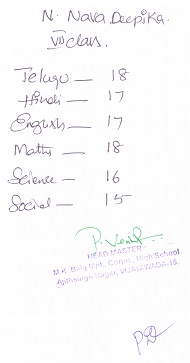 N. Nava Deepika.
VII class.
Telugu — 18
Hindi — 17
English — 17
Maths — 18
Science — 16
Social — 15
HEAD MASTER
M.K. Baig Mpl. Corpn. High School
Ajithsingh Nagar, VIJAYAWADA-15.